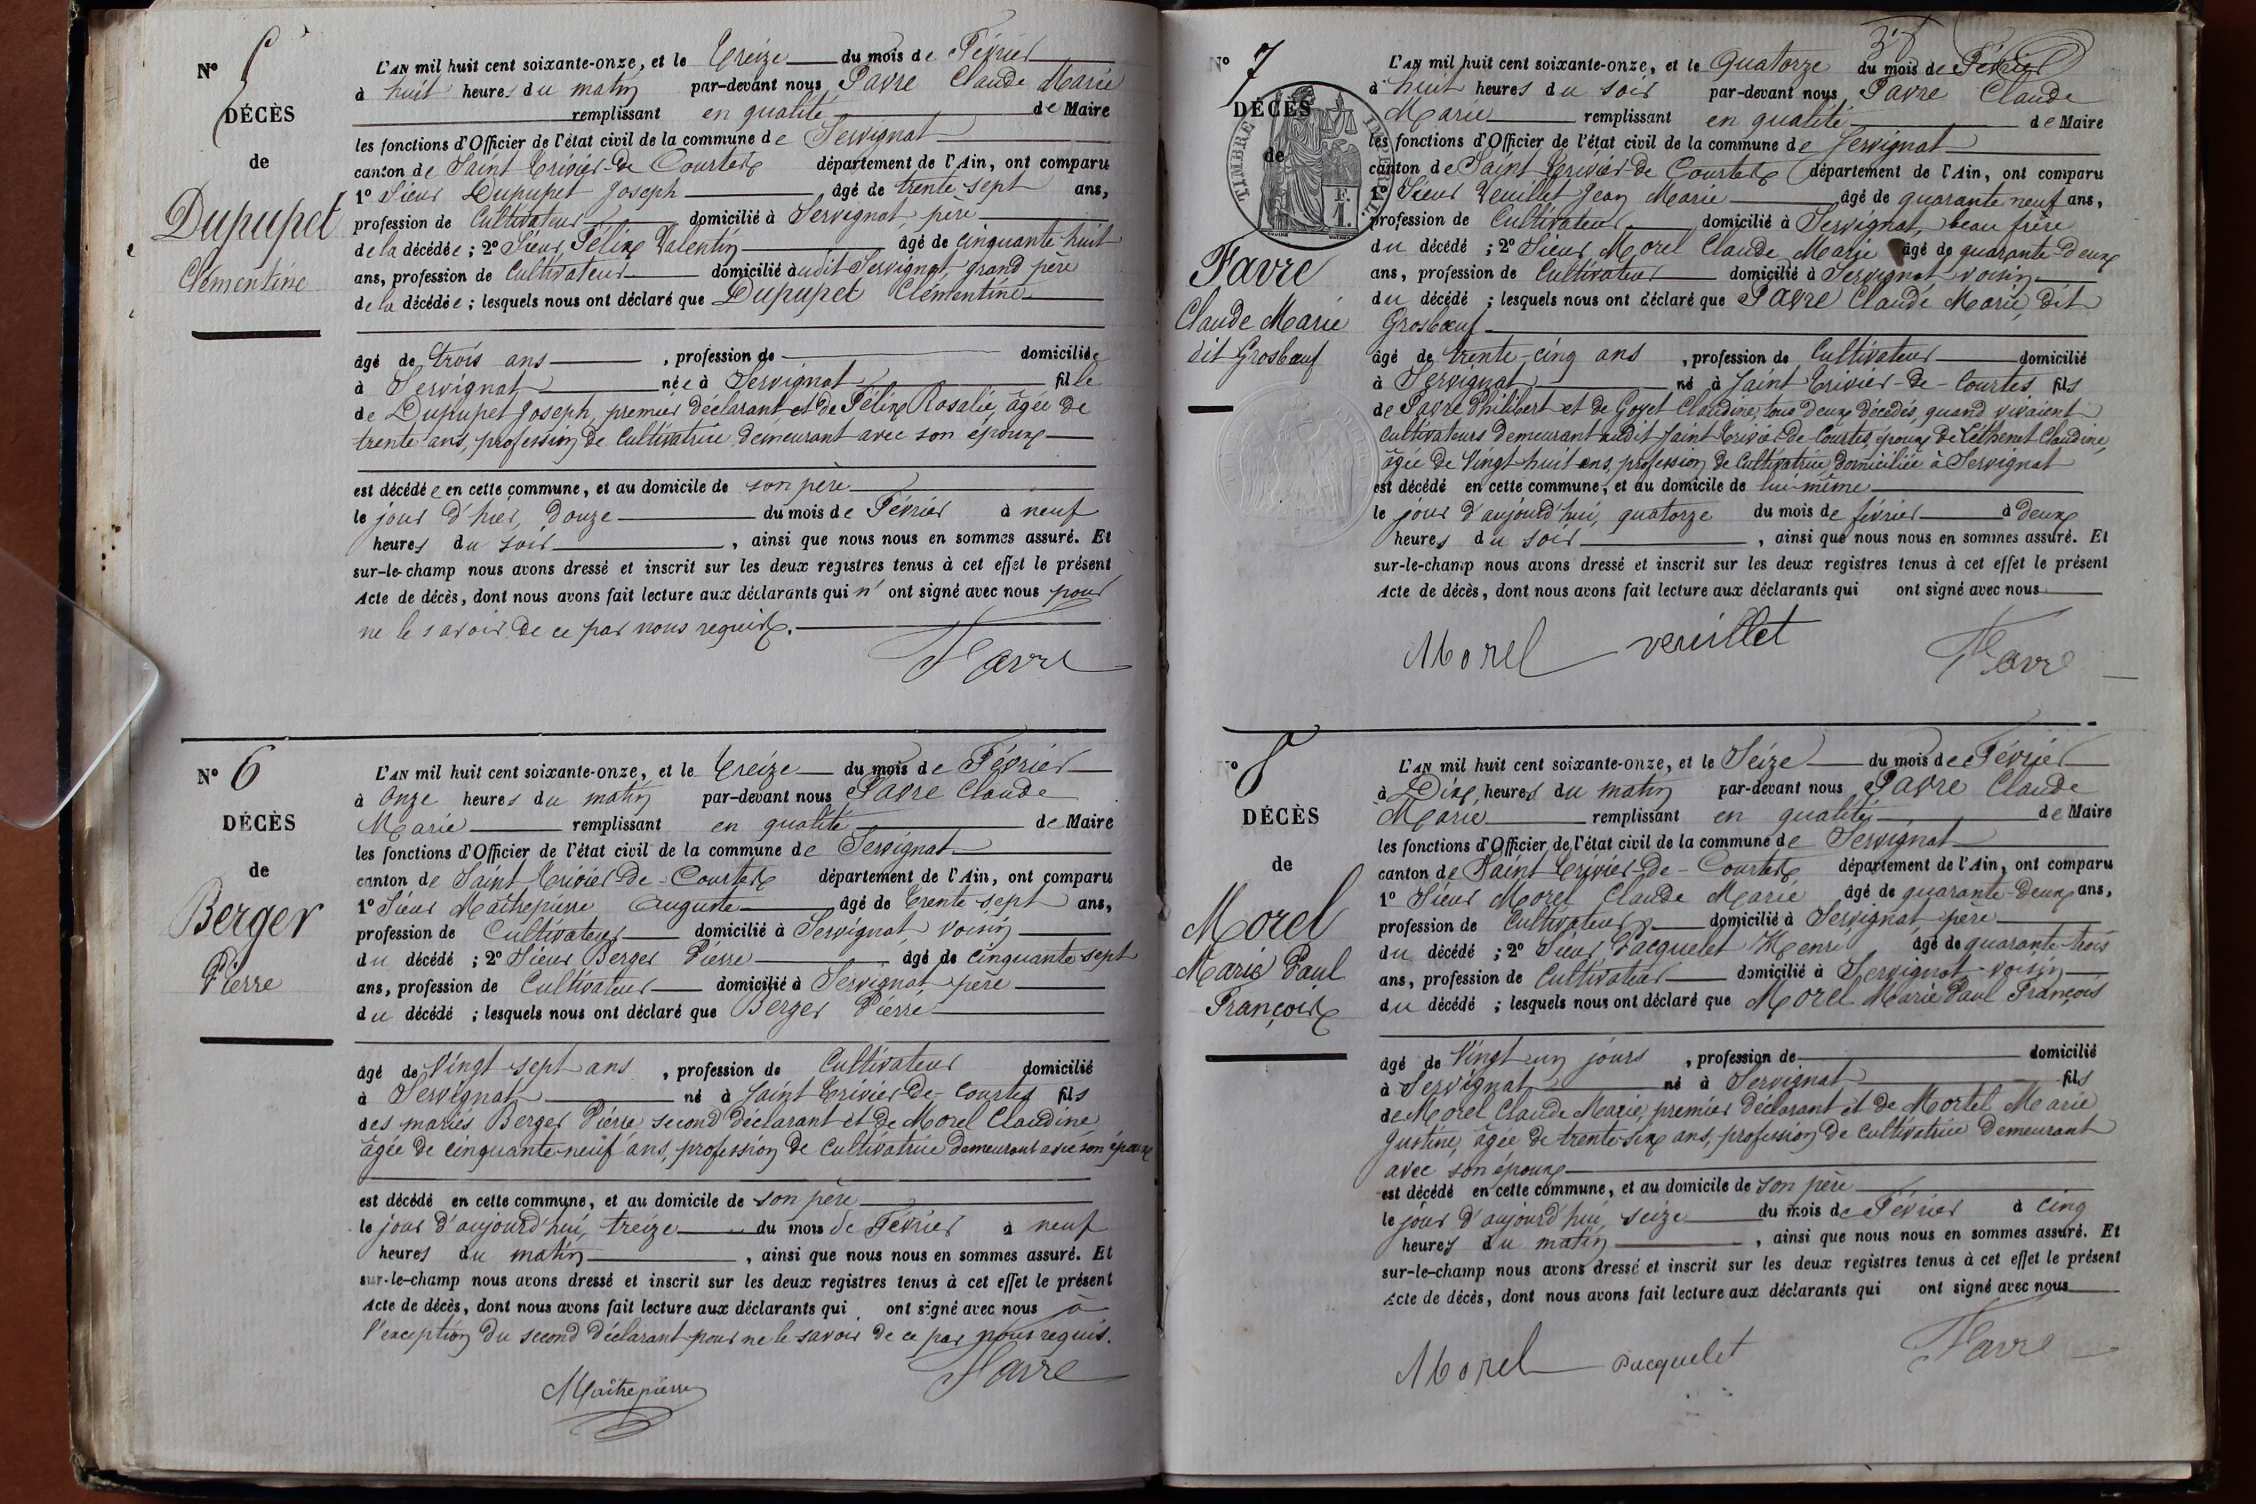 N° 5
DÉCÈS
de
Dupupet
Clémentine
L'AN mil huit cent soixante-onze, et le treize du mois de Février
à huit heures du matin par-devant nous Favre Claude Marie
remplissant en qualité de Maire
les fonctions d'Officier de l'état civil de la commune de Servignat
canton de Saint Trivier-de Courtes département de l'Ain, ont comparu
1° Sieur Dupupet Joseph, âgé de trente sept ans,
profession de Cultivateur domicilié à Servignat, père
de la décédée ; 2° Sieur Féline Valentin âgé de cinquante-huit
ans, profession de Cultivateur domicilié audit Servignat, grand père
de la décédée ; lesquels nous ont déclaré que Dupupet Clémentine
âgé de trois ans, profession de domiciliée
à Servignat née à Servignat fille
de Dupupet Joseph, premier déclarant et de Féline Rosalie, âgée de
trente ans, profession de Cultivatrice demeurant avec son époux
est décédée en cette commune, et au domicile de son père
le jour d'hier, douze du mois de Février à neuf
heures du soir, ainsi que nous nous en sommes assuré. Et
sur-le-champ nous avons dressé et inscrit sur les deux registres tenus à cet effet le présent
Acte de décès, dont nous avons fait lecture aux déclarants qui n'ont signé avec nous pour
ne le savoir de ce par nous requis.
Favre
N° 6
DÉCÈS
de
Berger
Pierre
L'AN mil huit cent soixante-onze, et le treize du mois de Février
à Onze heures du matin par-devant nous Favre Claude
Marie remplissant en qualité de Maire
les fonctions d'Officier de l'état civil de la commune de Servignat
canton de Saint Trivier-de-Courtes département de l'Ain, ont comparu
1° Sieur Maîtrepierre Auguste âgé de trente sept ans,
profession de Cultivateur domicilié à Servignat, voisin
du décédé ; 2° Sieur Berger Pierre âgé de cinquante sept
ans, profession de Cultivateur domicilié à Servignat père
du décédé ; lesquels nous ont déclaré que Berger Pierre
âgé de Vingt sept ans, profession de Cultivateur domicilié
à Servignat né à Saint Trivier-de-Courtes fils
des mariés Berger Pierre second déclarant et de Morel Claudine
âgée de cinquante-neuf ans, profession de Cultivatrice demeurant avec son époux
est décédé en cette commune, et au domicile de son père
le jour d'aujourd'hui, treize du mois de Février à neuf
heures du matin, ainsi que nous nous en sommes assuré. Et
sur-le-champ nous avons dressé et inscrit sur les deux registres tenus à cet effet le présent
Acte de décès, dont nous avons fait lecture aux déclarants qui ont signé avec nous à
l'exception du second déclarant pour ne le savoir de ce par nous requis.
Maîtrepierre Favre
N° 7
DÉCÈS
de
TIMBRE IMPÉRIAL
Favre
Claude Marie
dit Grosbœuf
L'AN mil huit cent soixante-onze, et le Quatorze du mois de Février
à huit heures du soir par-devant nous Favre Claude
Marie remplissant en qualité de Maire
les fonctions d'Officier de l'état civil de la commune de Servignat
canton de Saint Trivier-de Courtes département de l'Ain, ont comparu
1° Sieur Veuillet Jean Marie âgé de quarante neuf ans,
profession de Cultivateur domicilié à Servignat, beau frère
du décédé ; 2° Sieur Morel Claude Marie âgé de quarante-deux
ans, profession de Cultivateur domicilié à Servignat voisin
du décédé ; lesquels nous ont déclaré que Favre Claude Marie, dit
Grosbœuf
âgé de trente-cinq ans, profession de Cultivateur domicilié
à Servignat né à Saint Trivier-de-Courtes fils
de Favre Philibert et de Goyet Claudine, tous deux décédés, quand vivaient
Cultivateurs demeurant audit Saint Trivier-de-Courtes, époux de Léthenet Claudine,
âgée de Vingt huit ans, profession de Cultivatrice, domiciliée à Servignat
est décédé en cette commune, et au domicile de lui-même
le jour d'aujourd'hui, quatorze du mois de février à deux
heures du soir, ainsi que nous nous en sommes assuré. Et
sur-le-champ nous avons dressé et inscrit sur les deux registres tenus à cet effet le présent
Acte de décès, dont nous avons fait lecture aux déclarants qui ont signé avec nous
Morel veuillet Favre
N° 8
DÉCÈS
de
Morel
Marie Paul
François
L'AN mil huit cent soixante-onze, et le Seize du mois de Février
à Dix heures du matin par-devant nous Favre Claude
Marie remplissant en qualité de Maire
les fonctions d'Officier de l'état civil de la commune de Servignat
canton de Saint Trivier-de-Courtes département de l'Ain, ont comparu
1° Sieur Morel Claude Marie âgé de quarante-deux ans,
profession de Cultivateur domicilié à Servignat père
du décédé ; 2° Sieur Pacquelet Henri, âgé de quarante-trois
ans, profession de Cultivateur domicilié à Servignat voisin
du décédé ; lesquels nous ont déclaré que Morel Marie Paul François
âgé de Vingt un jours, profession de domicilié
à Servignat né à Servignat fils
de Morel Claude Marie, premier déclarant et de Mortel Marie
Justine, âgée de trente-six ans, profession de cultivatrice demeurant
avec son époux
est décédé en cette commune, et au domicile de son père
le jour d'aujourd'hui, seize du mois de Février à cinq
heures du matin, ainsi que nous nous en sommes assuré. Et
sur-le-champ nous avons dressé et inscrit sur les deux registres tenus à cet effet le présent
Acte de décès, dont nous avons fait lecture aux déclarants qui ont signé avec nous
Morel Pacquelet Favre